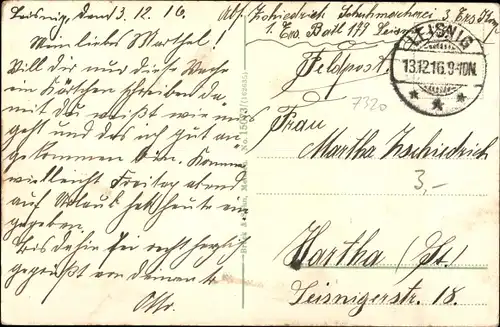 Leisnig, den 13.12.16.
Mein liebes Marthel!
Will Dir nur diese Woche
ein Kärtchen schreiben da-
mit du weißt wie mirs
geht und das ich gut an-
gekommen bin. Komme
vielleicht Freitag abend
auf Urlaub hab heute ein
gegeben.
Bis dahin sei recht herzlich
gegrüßt von deinem
Otto.
Abs. Zschiedrich 3. Ers
1. Ers. Batl. 179 Leisnig
Feldpost.
LEISNIG
13.12.16. 9-10N.
7320
Frau
Martha Zschiedrich
3,-
Hartha
Leisnigerstr. 18.